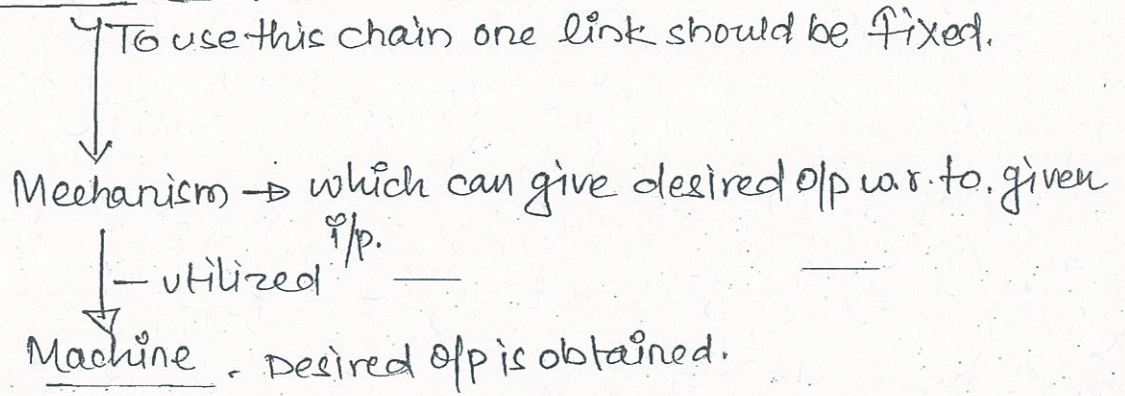 To use this chain one link should be fixed.
Mechanism → which can give desired o/p w.r.to. given
i/p.
- utilized —
Machine. Desired o/p is obtained.